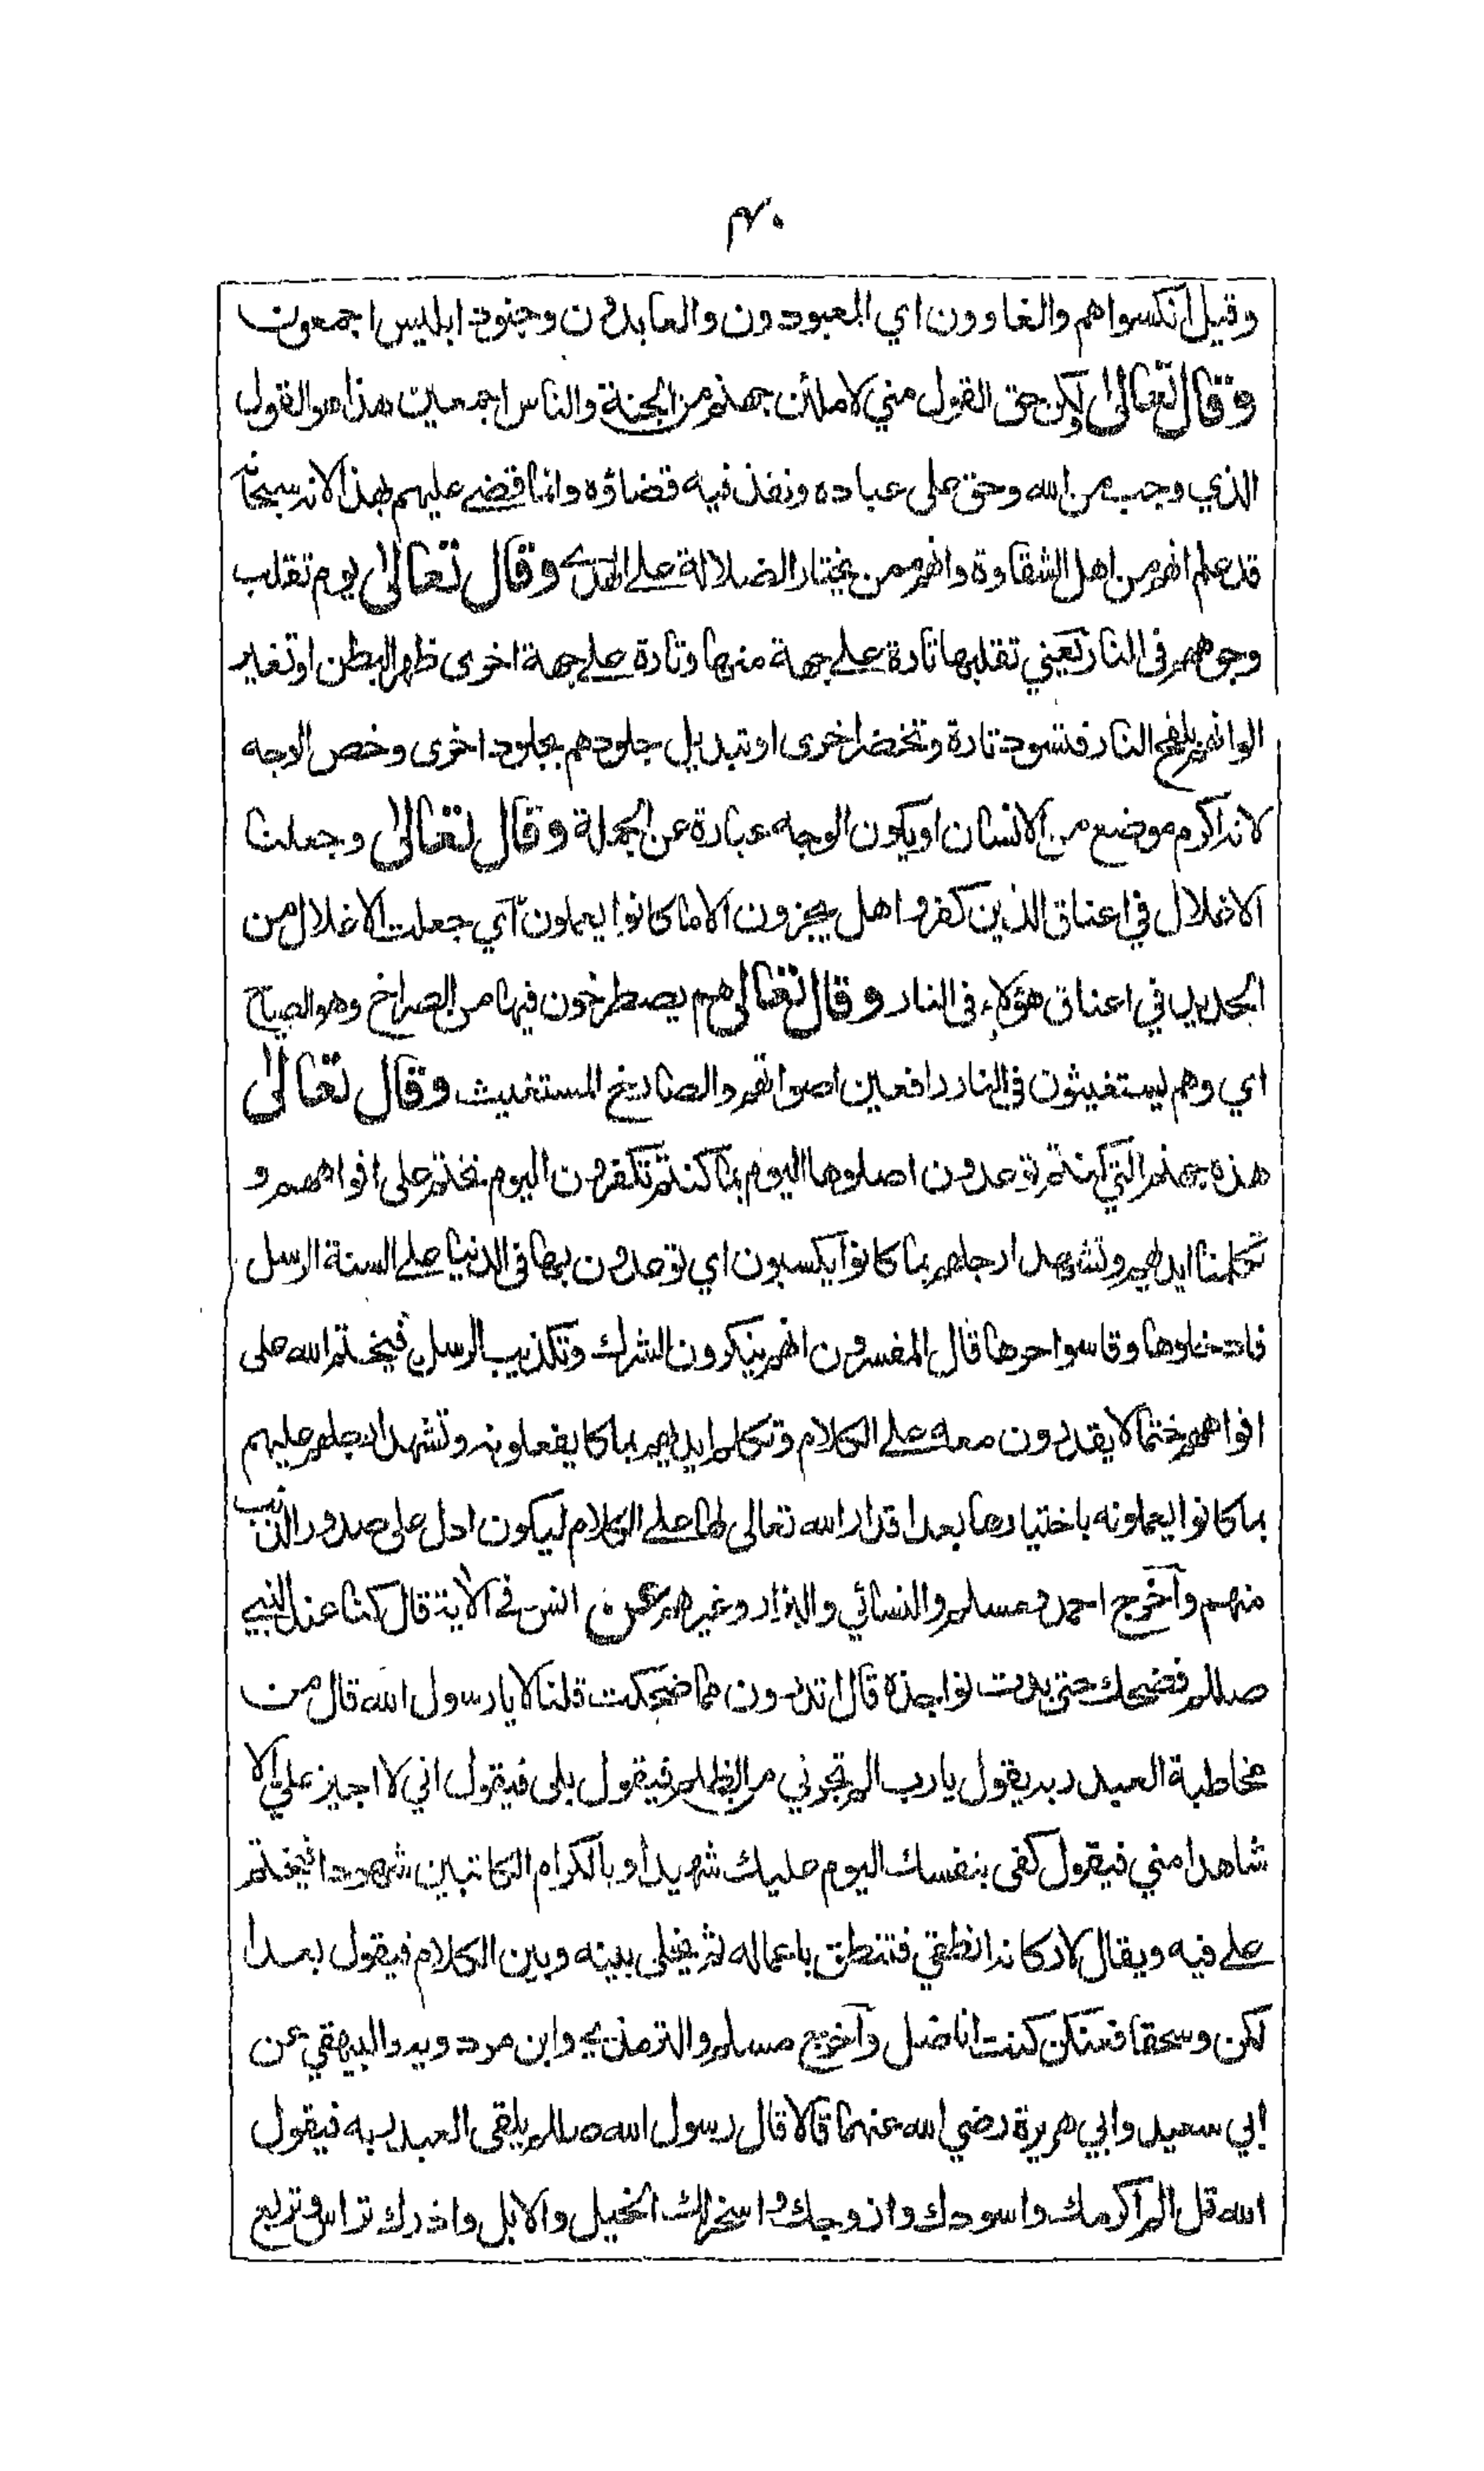 ٣٠
وقيل انكسوا هم والغاوون اي المعبودون والعابدون وجنود ابليس اجمعون
وقال تعالى ولكن حق القول مني لاملئن جهنم من الجنة والناس اجمعين هذا هو القول
الذي وجب من الله وحق على عباده ونفذ فيه قضاؤه وانما قضى عليهم بهذا لانه سبحانه
قد علم انهم من اهل الشقاوة وانهم ممن يختار الضلالة على الهدى وقال تعالى يوم تقلب
وجوههم في النار يعني تقلبها تارة على جهة منها وتارة على جهة اخرى ظهرا لبطن او تغير
الوانهم بلفح النار فتسود تارة وتخضر اخرى او تبديل جلودهم بجلود اخرى وخص الوجه
لانه اكرم موضع من الانسان او يكون الوجه عبارة عن الجملة وقال تعالى وجعلنا
الاغلال في اعناق الذين كفروا هل يجزون الا ما كانوا يعملون اي جعلت الاغلال من
الحديد في اعناق هؤلاء في النار وقال تعالى وهم يصطرخون فيها من الصراخ وهو الصياح
اي وهم يستغيثون في النار رافعين اصواتهم والصارخ المستغيث وقال تعالى
هذه جهنم التي كنتم توعدون اصلوها اليوم بما كنتم تكفرون اليوم نختم على افواههم و
تكلمنا ايديهم وتشهد ارجلهم بما كانوا يكسبون اي توعدون بها في الدنيا على السنة الرسل
فادخلوها وقاسوا حرها قال المفسرون انهم ينكرون الشرك وتكذيب الرسل فيختم الله على
افواههم ختما لا يقدرون معه على الكلام وتكلم ايديهم بما كا يفعلونه وتشهد ارجلهم عليهم
بما كانوا يعملونه باختيارها بعد اقدار الله تعالى لها على الكلام ليكون ادل على صدور الذنب
منهم وأخرج احمد ومسلم والنسائي والبزار وغيرهم عن انس في الآية قال كنا عند النبي
صللم فضحك حتى بدت نواجذه قال اتدرون مما ضحكت قلنا لا يا رسول الله قال من
مخاطبة العبد ربه يقول يا رب الم تجرني من الظلم فيقول بلى فيقول اني لا اجيز علي الا
شاهدا مني فيقول كفى بنفسك اليوم عليك شهيدا وبالكرام الكاتبين شهودا فيختم
على فيه ويقال لاركانه انطقي فتنطق باعماله ثم يخلى بينه وبين الكلام فيقول بعدا
لكن وسحقا فعنكن كنت اناضل وأخرج مسلم والترمذي وابن مردويه والبيهقي عن
ابي سعيد وابي هريرة رضي الله عنهما قالا قال رسول الله صللم يلقى العبد ربه فيقول
الله قل الم اكرمك واسودك وازوجك واسخر لك الخيل والابل واذرك تراس وتربع